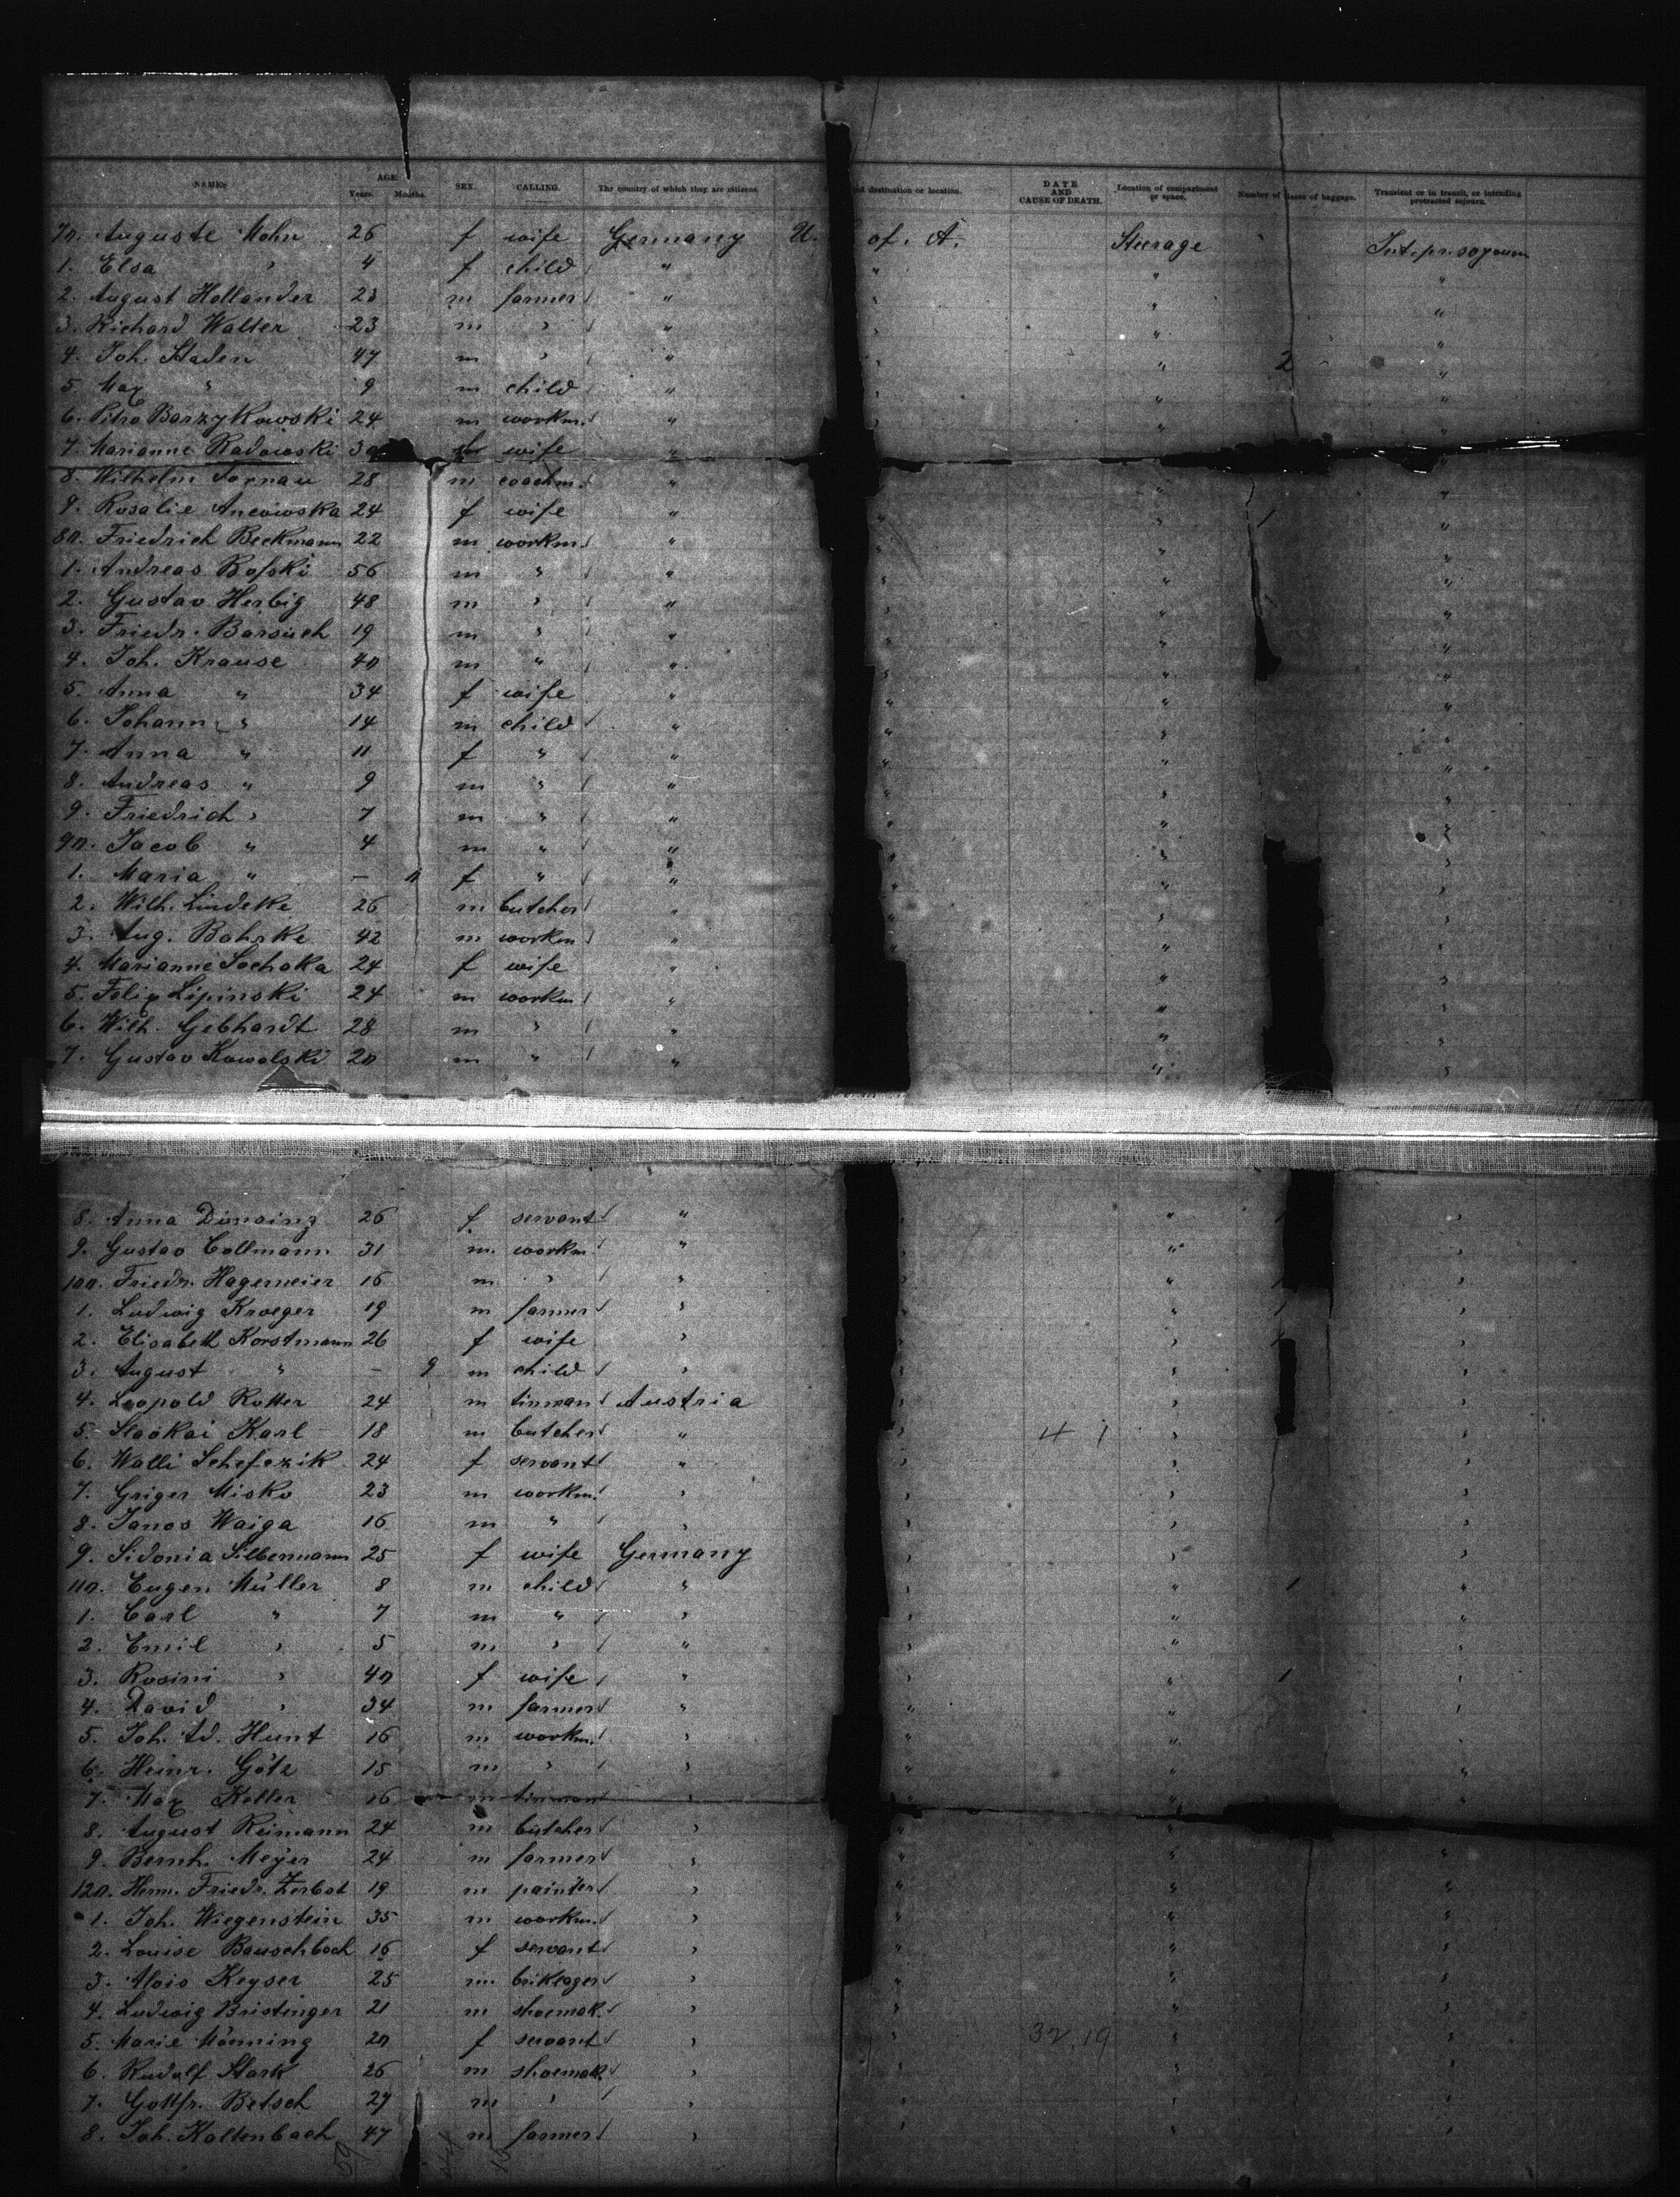 NAMES AGE Years. Months. SEX. CALLING. The country of which they are citizens. destination or location. DATE AND CAUSE OF DEATH. Location of compartment or space. Number of pieces of baggage. Transient or in transit, or intending protracted sojourn.
70. Auguste Mohn 26 f wife Germany U. of. A. Steerage Int. pr. sojourn
1. Elsa " 4 f child " " " "
2. August Hollander 23 m farmer " " " "
3. Richard Walter 23 m " " " " "
4. Joh. Staden 47 m " " " " 2 "
5. Max " 9 m child " " " "
6. Barzykowski 24 m workm. " " " "
7. Marianne Radowski f wife "
8. Wilhelm Tornau 28 m coachm. " " "
9. Rosalie 24 f wife " " " 1 "
80. Friedrich Beckmann 22 m workm. " " " "
1. Andreas 56 m " " " " "
2. Gustav Herbig 48 m " " " " "
3. Friedr. 19 m " " " " "
4. Joh. Krause 40 m " " " " "
5. Anna " 34 f wife " " " "
6. Johann " 14 m child " " " "
7. Anna " 11 f " " " " "
8. Andreas " 9 m " " " " "
9. Friedrich " 7 m " " " " "
90. Jacob " 4 m " " " " "
1. Maria " — f " " " " "
2. Wilh. Lindeke 26 m butcher " " " "
3. Aug. Bahrke 42 m workm " " "
4. Marianne Sochaka 24 f wife " " "
5. Felix Lipinski 24 m workm " " "
6. Wilh. Gebhardt 28 m " " " "
7. Gustav Kowalski 20 m " " " "
8. Anna 26 f servant " " " "
9. Gustav Collmann 31 m. workm. " " "
100. Friedr. Hagemeier 16 m " " " " "
1. Ludwig Kroeger 19 m farmer " " " "
2. Elisabeth Korstmann 26 f wife " " " "
3. August " — 9 m child " " " "
4. Leopold Rotter 24 m tinman Austria " " "
5. Karl 18 m butcher " " " "
6. Walli Schefczik 24 f servant " " " "
7. Griger Misko 23 m workm. " " " "
8. Janos Waiga 16 m " " " " "
9. Sidonia Silbermann 25 f wife Germany " " "
110. Eugen Müller 8 m child " " " 1 "
1. Carl " 7 m " " " "
2. Emil " 5 m " " " " "
3. Rosini " 40 f wife " " " 1 "
4. David " 34 m farmer " " " "
5. Joh. Ad. Hunt 16 m workm. " " " "
6. Heinr. Götz 15 m " " " " "
7. Max Keller 16 m tinman " " " "
8. August Reimann 24 m butcher " " "
9. Bernh. Meyer 24 m farmer " " " "
120. Herm. Friedr. Zerbst 19 m painter " " " "
1. Joh. Wiegenstein 35 m workm. " " " "
2. Louise Bauschbach 16 f servant " " " "
3. Alois Keyser 25 m briklager " " " "
4. Ludwig Bristinger 21 m shoemak. " " " "
5. Marie Mönning 20 f servant " " 32.19 " "
6. Rudolf Stark 26 m shoemak. " " " "
7. Gottfr. Betsch 27 m " " " " "
8. Joh. Kaltenbach 47 m farmer " " " "
59